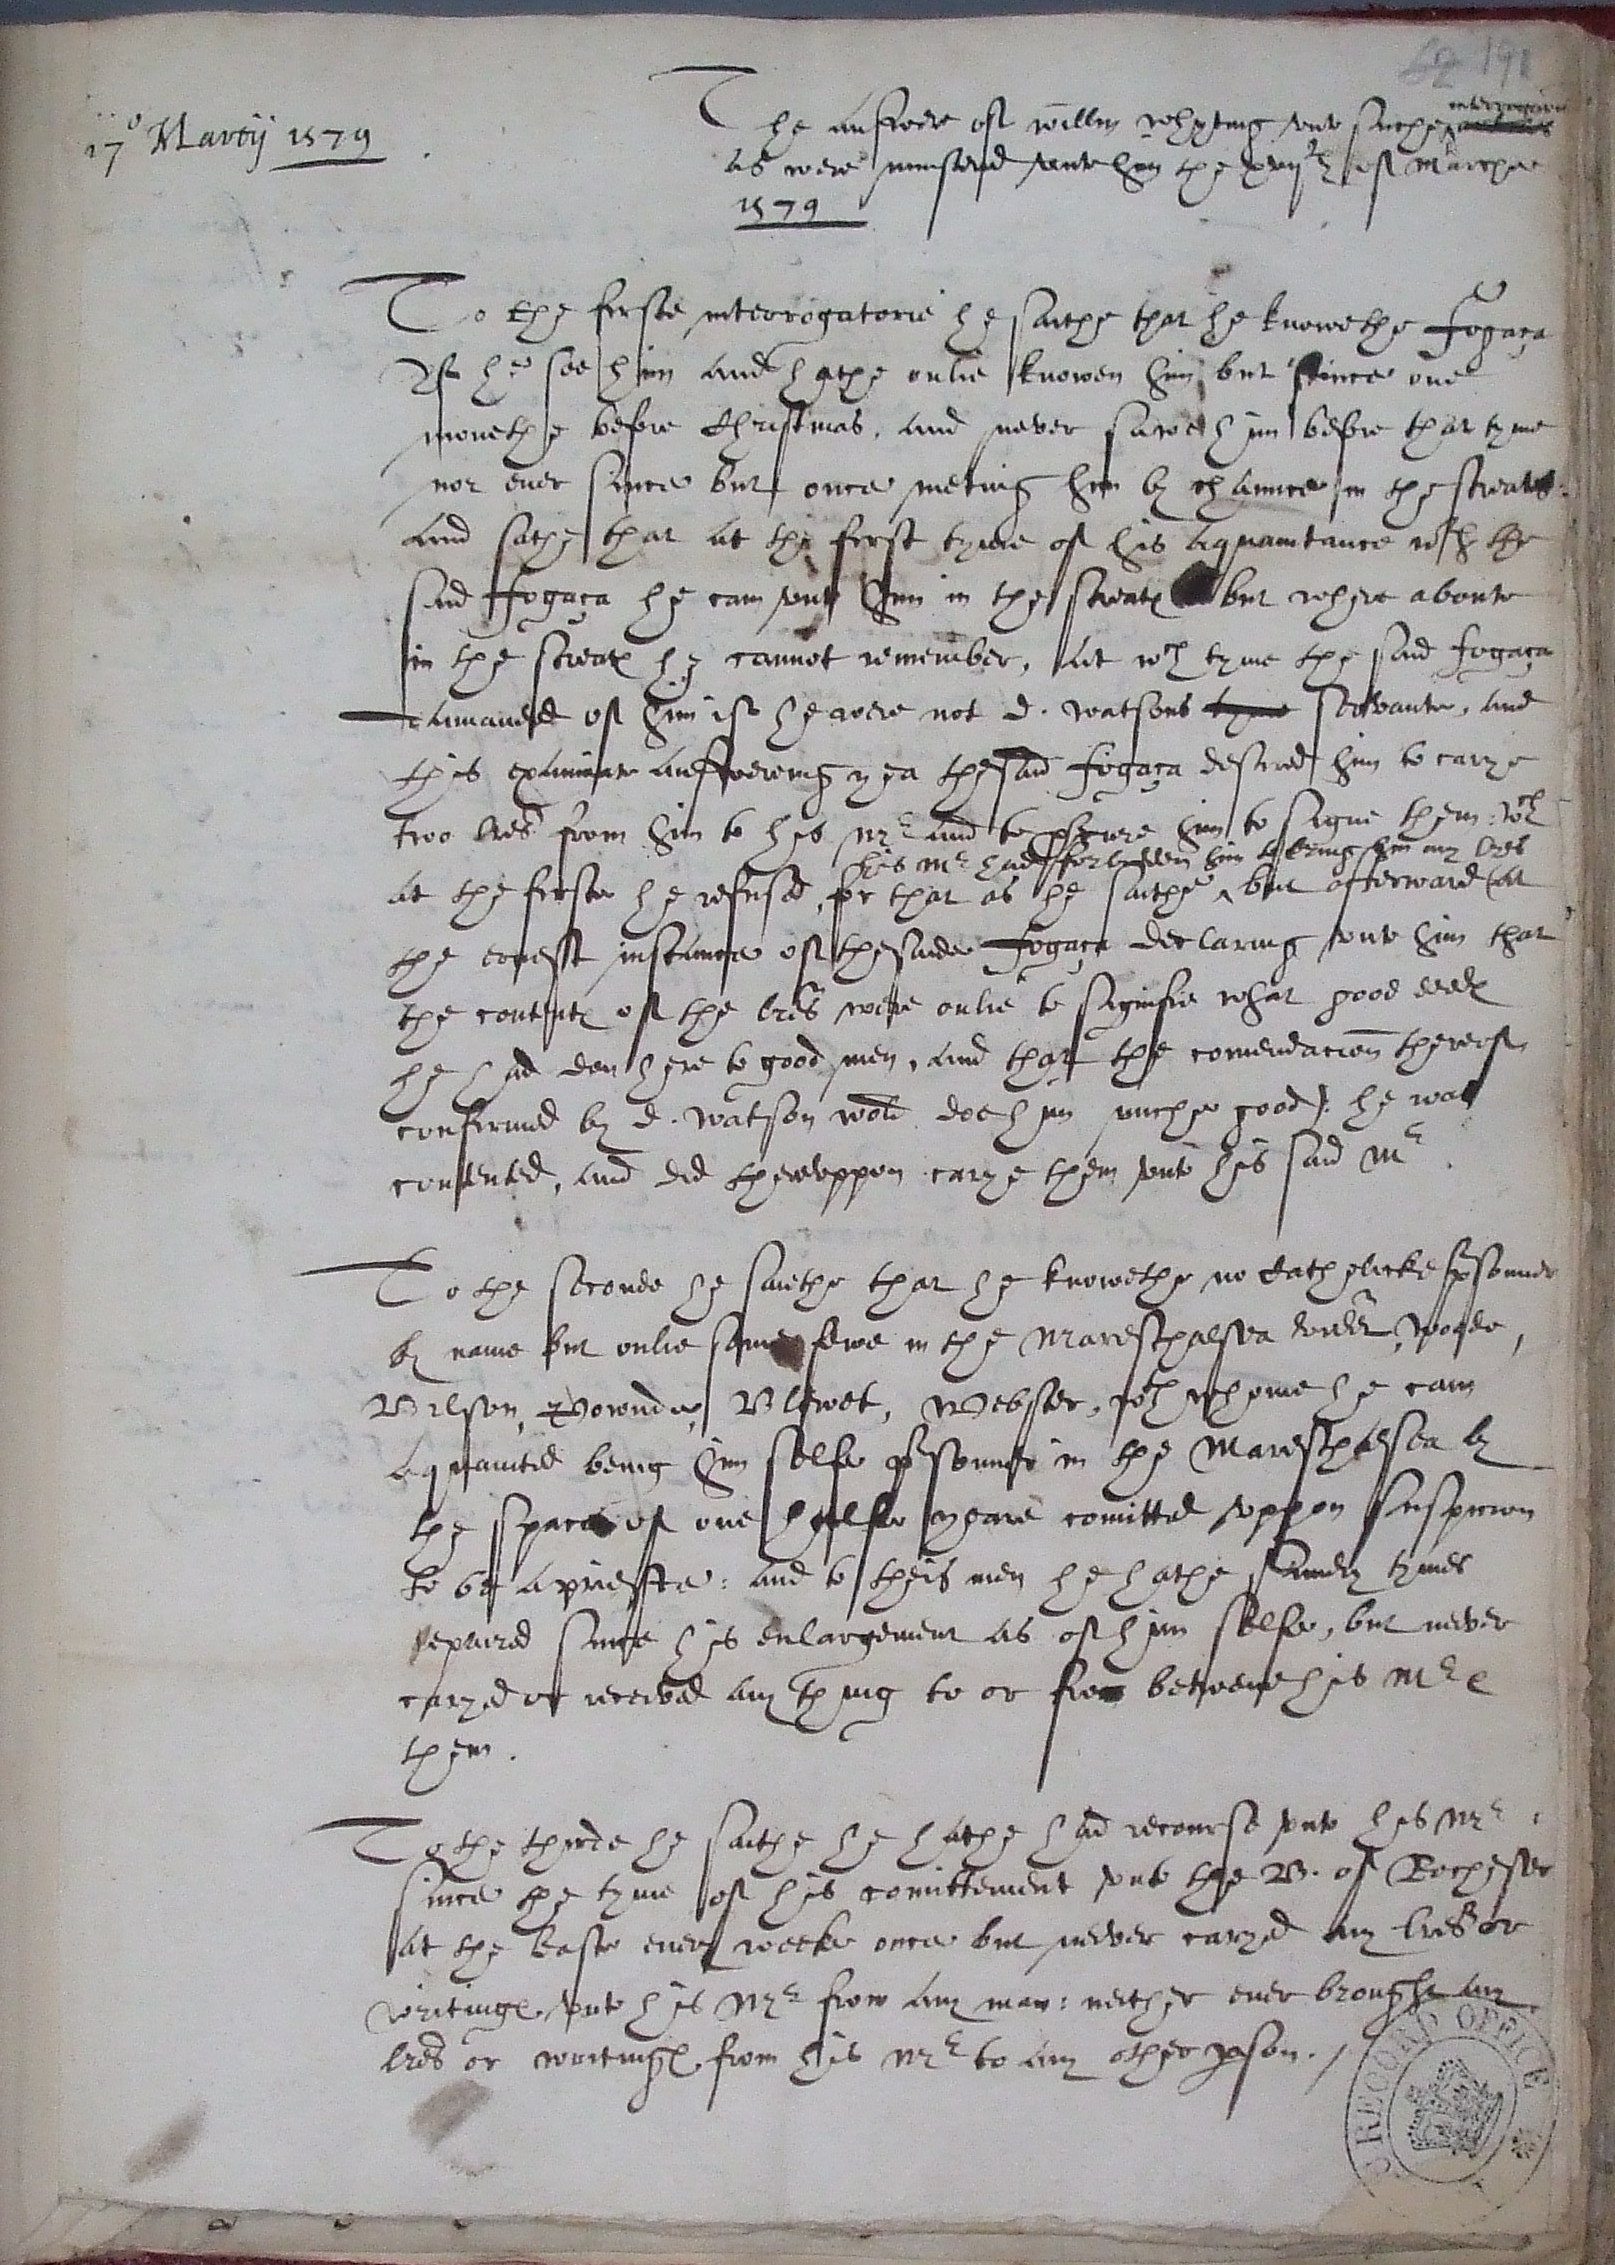 191
17º Martij 1579
The answere of Willm Whyting vnto suche interrogatories
as were ministred vnto him the xvijth of Marche
1579
To the firste interrogatorie he saithe that he knowethe Fogaça
yf he see him and hathe onlie knowen him but since one
monethe before Christmas, and never sawe him before that tyme
nor ever since but once meting him by chaunce in the streates:
And sathe that at the first tyme of his aquaintance wth the
said Fogaça he cam vnto him in the streate but where aboute
in the streate he cannot remember, at wch tyme the said Fogaça
demanded of him if he were not d. Watsons tyme servante, and
this examinate answereing yea the said Fogaça desired him to carye
two lres from him to his Mr and to procure him to signe them: wch
his Mr had forbydden him to bring him any lres
at the firste he refused, for that as he saithe ^ but afterward at
the ernest instance of the saide Fogaça declaring vnto him that
the contentes of the lres were onlie to signifie what good deedes
he had don here to good men, and that the comendacion thereof
confirmed by d. Watson wold doe him muche good, he was
contented, and did therevppon carye them vnto his said Mr.
To the seconde he saiethe that he knowethe no Catholicke prsonner
by name but onlie some fewe in the Mareschalsea Wood,
Bilson, Pownde, Blewet, Webster, wth whome he cam
aquainted being him selfe prsonner in the Mareschalsea by
the space of one halfe yeare comitted vppon suspicion
to be a prieste: and to theis men he hathe sundry tymes
repaired since his enlargement as of him selfe, but never
caryed or received any thing to or fro betwene his Mr &
them.
To the thirde he saithe he hathe had recourse vnto his Mr
since the tyme of his comittement vnto the B. of Rochester
at the leaste every weeke once but never caryed any lres or
writinges vnto his Mr from any man: neither ever brought any
lres or writinges from his Mr to any other pson. /
RECORD OFFICE